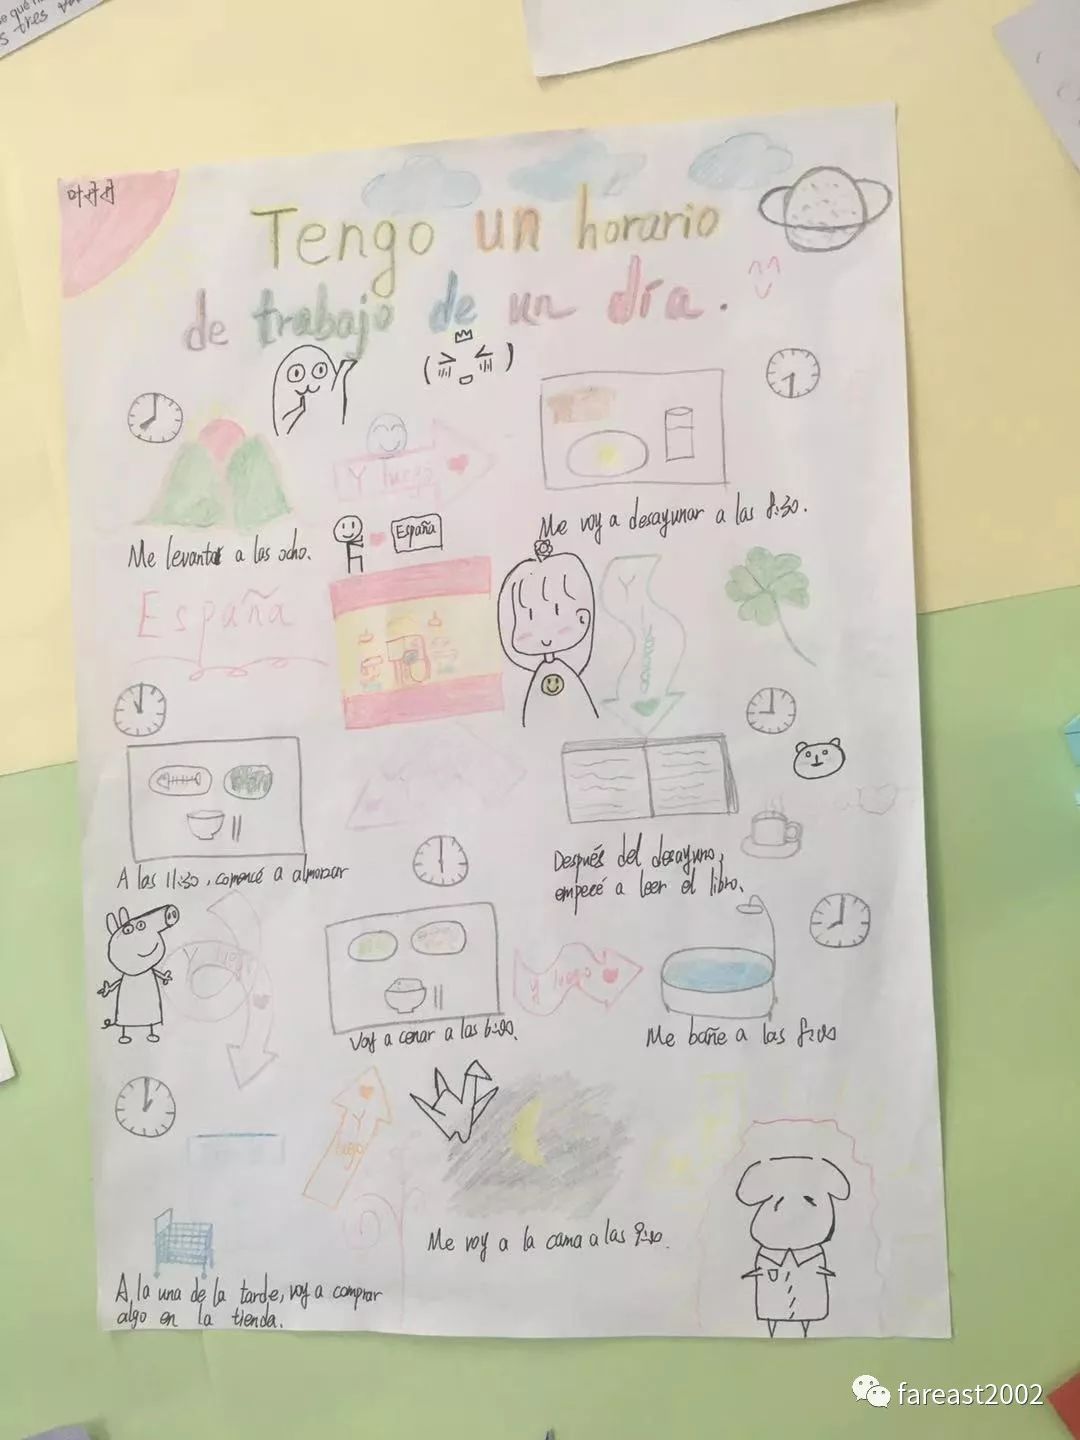 叶丹丹
Tengo un horario
de trabajo de un día.
Y luego
España
Me levantar a las ocho.
Me voy a desayunar a las 8:30.
España
Y luego
A las 11:30, comencé a almorzar
Después del desayuno,
empecé a leer el libro.
Y luego
Y luego
Voy a cenar a las 6:00.
Me bañe a las 8:00
Y luego
Me voy a la cama a las 9:30.
A la una de la tarde, voy a comprar
algo en la tienda.
fareast2002